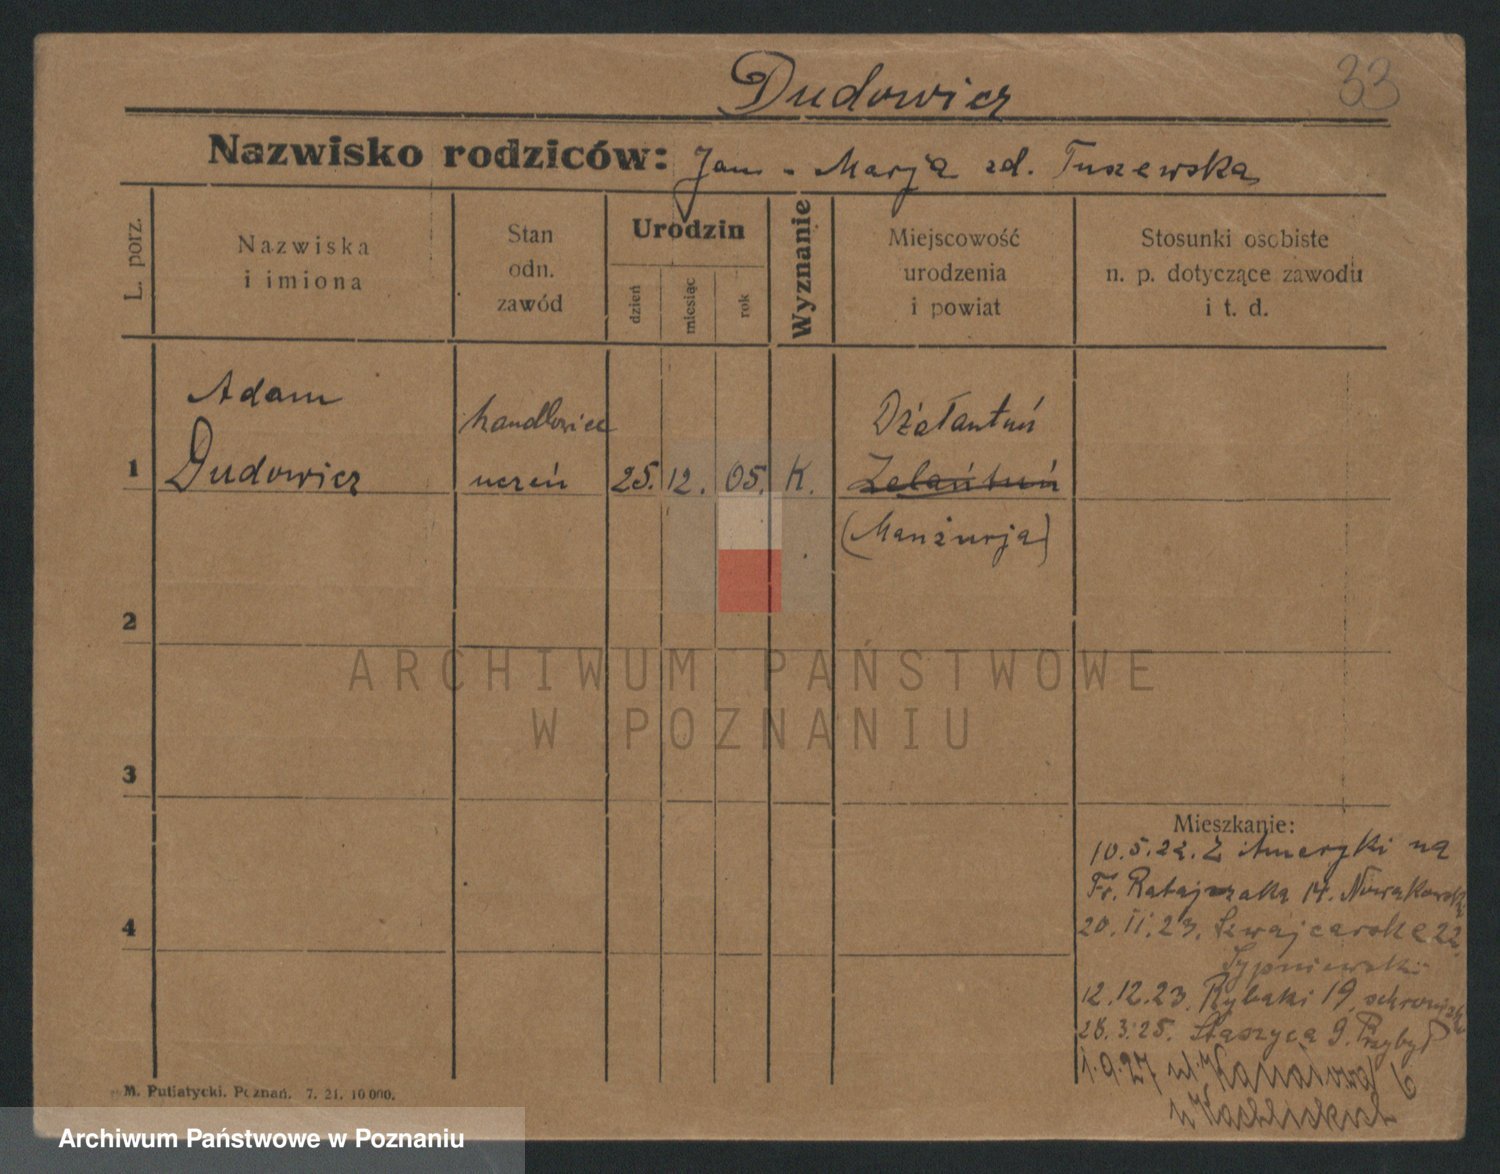 33
Dudowicz
Nazwisko rodziców: Jan - Marja zd. Tuszewska
L. porz.
Nazwiska
i imiona
Stan
odn.
zawód
Urodzin
dzień
miesiąc
rok
Wyznanie
Miejscowość
urodzenia
i powiat
Stosunki osobiste
n. p. dotyczące zawodu
i t. d.
Adam
handlowiec
Dżałantuń
1 Dudowicz uczeń 25. 12. 05. K. Zelańtuń
(Manżurja)
2
ARCHIWUM PAŃSTWOWE
W POZNANIU
3
Mieszkanie:
10.5.22. Z Ameryki na
Fr. Ratajczaka 14. Nowakowska
4
20.11.23. Szwajcarska 22
Sypniewski
12.12.23. Rybaki 19,
28.3.25. Staszyca 9. Przybył
1.9.27 ul.
M. Putiatycki. Poznań. 7. 21. 10 000.
Archiwum Państwowe w Poznaniu